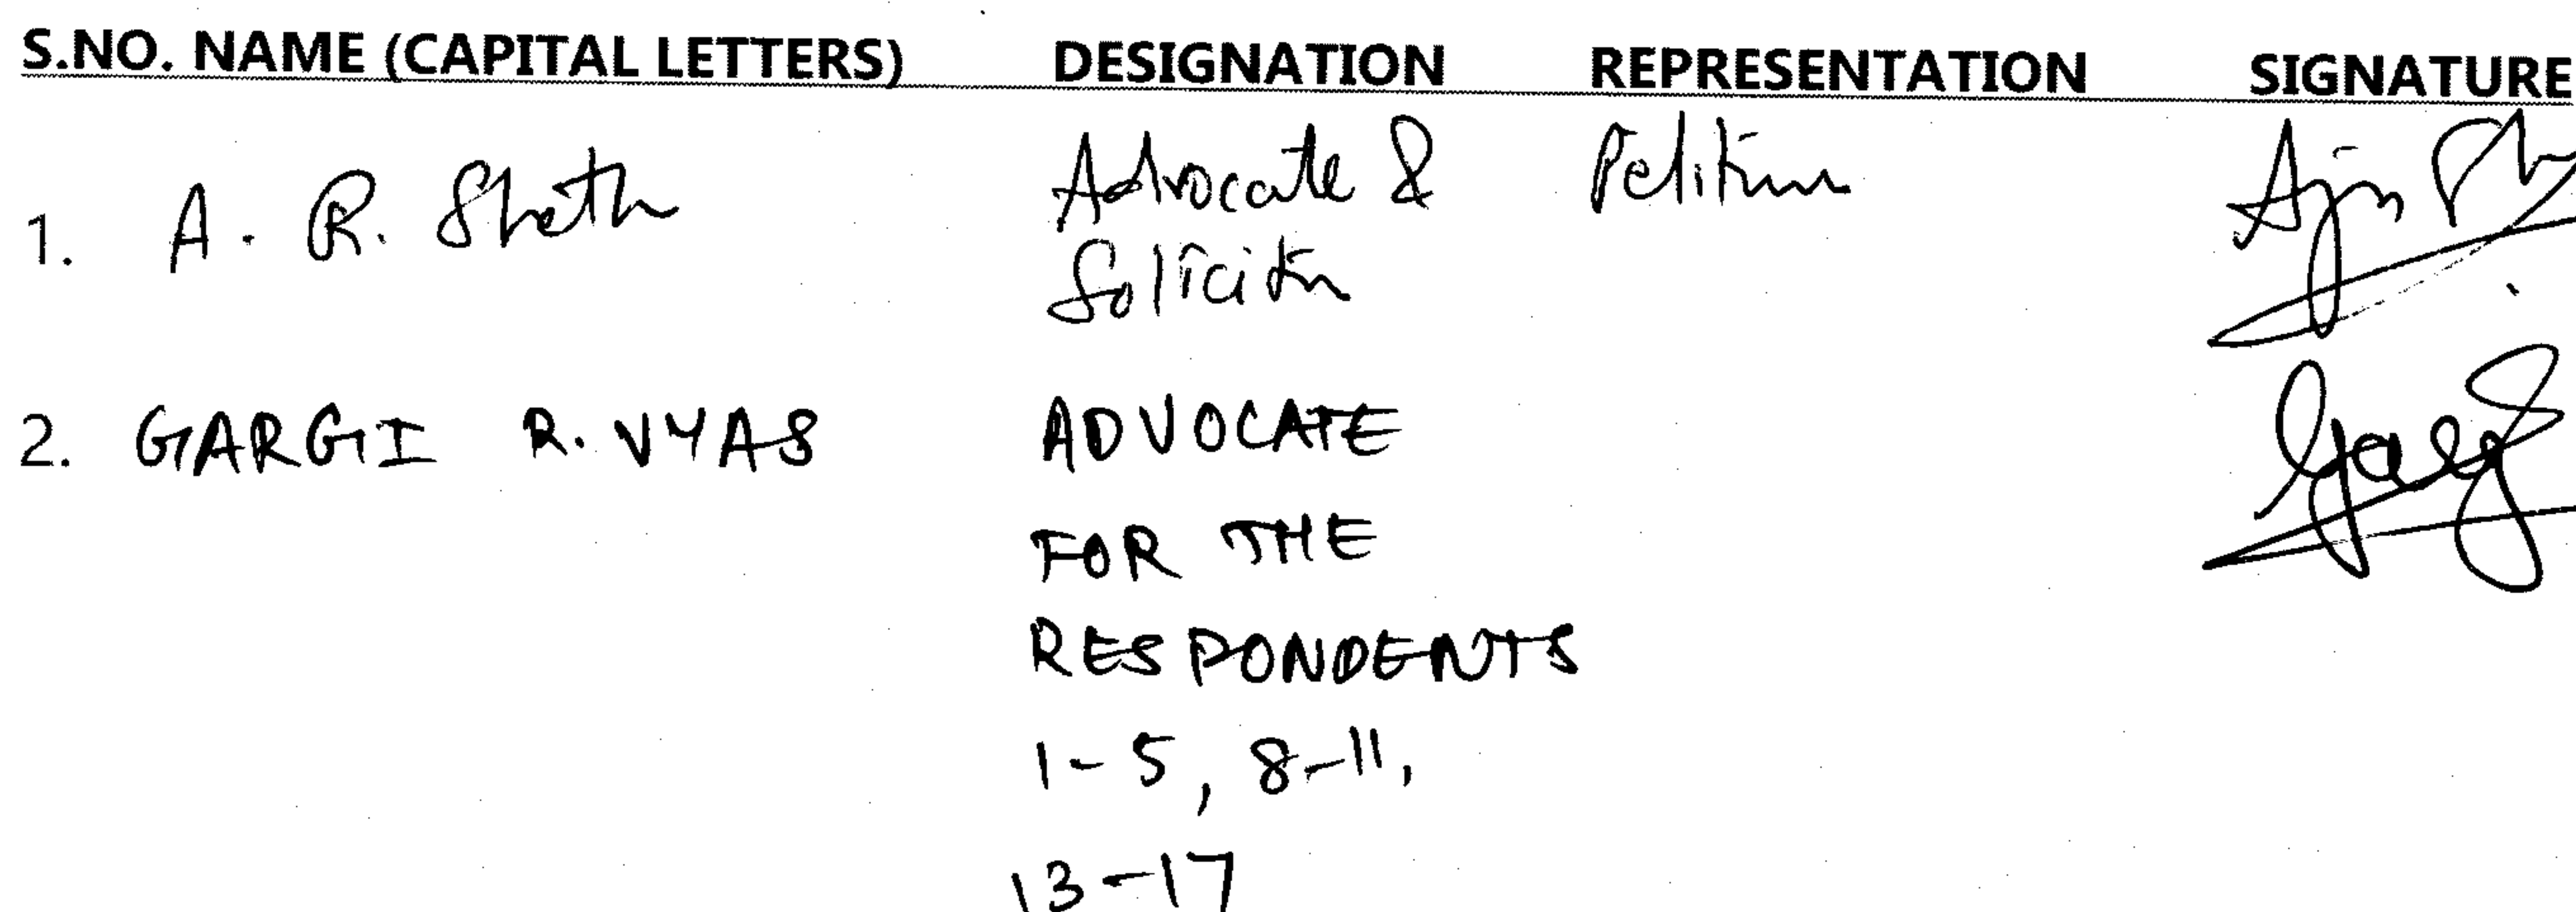 S.NO. NAME (CAPITAL LETTERS) DESIGNATION REPRESENTATION SIGNATURE
1. A. R. Sheth Advocate & Petitioner
Solicitor
2. GARGI R. VYAS ADVOCATE
FOR THE
RESPONDENTS
1-5, 8-11,
13-17